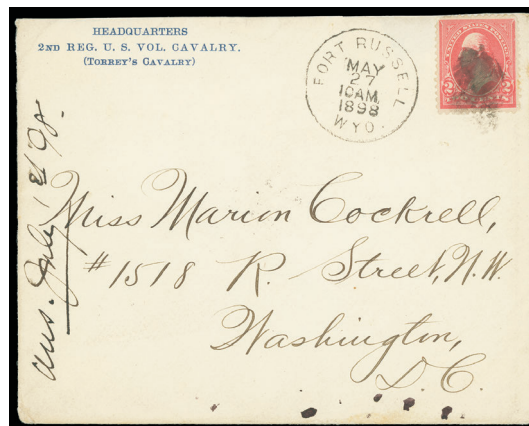 HEADQUARTERS
2ND REG. U. S. VOL. CAVALRY.
(TORREY'S CAVALRY)
FORT RUSSELL
MAY
27
10AM
1898
WYO.
2 2
Miss Marion Cockrell,
#1518 R. Street, N.W.
Washington,
D.C.
Ans. July 1st 98.